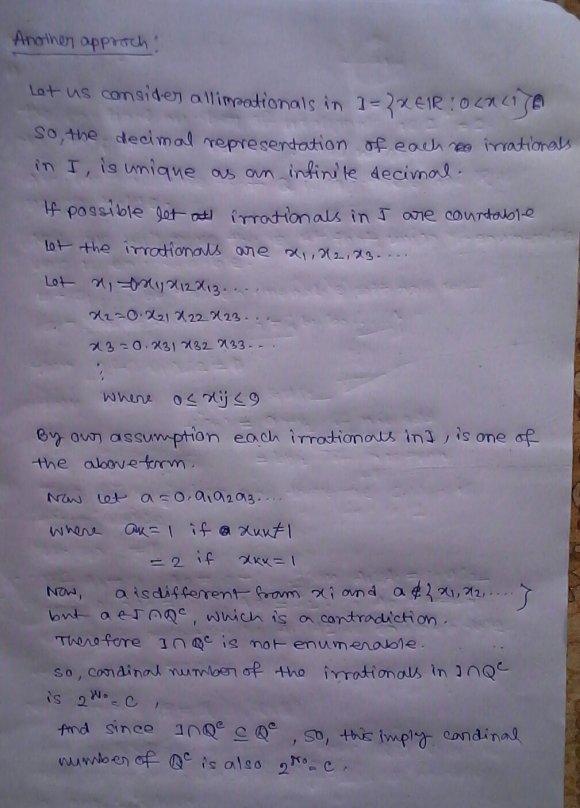 Another approch:
Let us consider all irrationals in I={x∈IR : 0<x<1}
so, the decimal representation of each irrationals
in I, is unique as an infinite decimal.
If possible let irrationals in I are countable
Let the irrationals are x₁, x₂, x₃....
Let x₁=0.x₁₁x₁₂x₁₃....
x₂=0.x₂₁x₂₂x₂₃....
x₃=0.x₃₁x₃₂x₃₃...
⋮
where 0≤xij≤9
By our assumption each irrationals in I, is one of
the above form.
Now let a=0.a₁a₂a₃....
where aₖ=1 if xₖₖ≠1
=2 if xₖₖ=1
Now, a is different from xi and a∉{x₁,x₂,....}
but a∈I∩Qᶜ, which is a contradiction.
Therefore I∩Qᶜ is not enumerable.
so, cardinal number of the irrationals in I∩Qᶜ
is 2^ℵ₀=c,
And since I∩Qᶜ⊆Qᶜ, so, this imply cardinal
number of Qᶜ is also 2^ℵ₀=c.